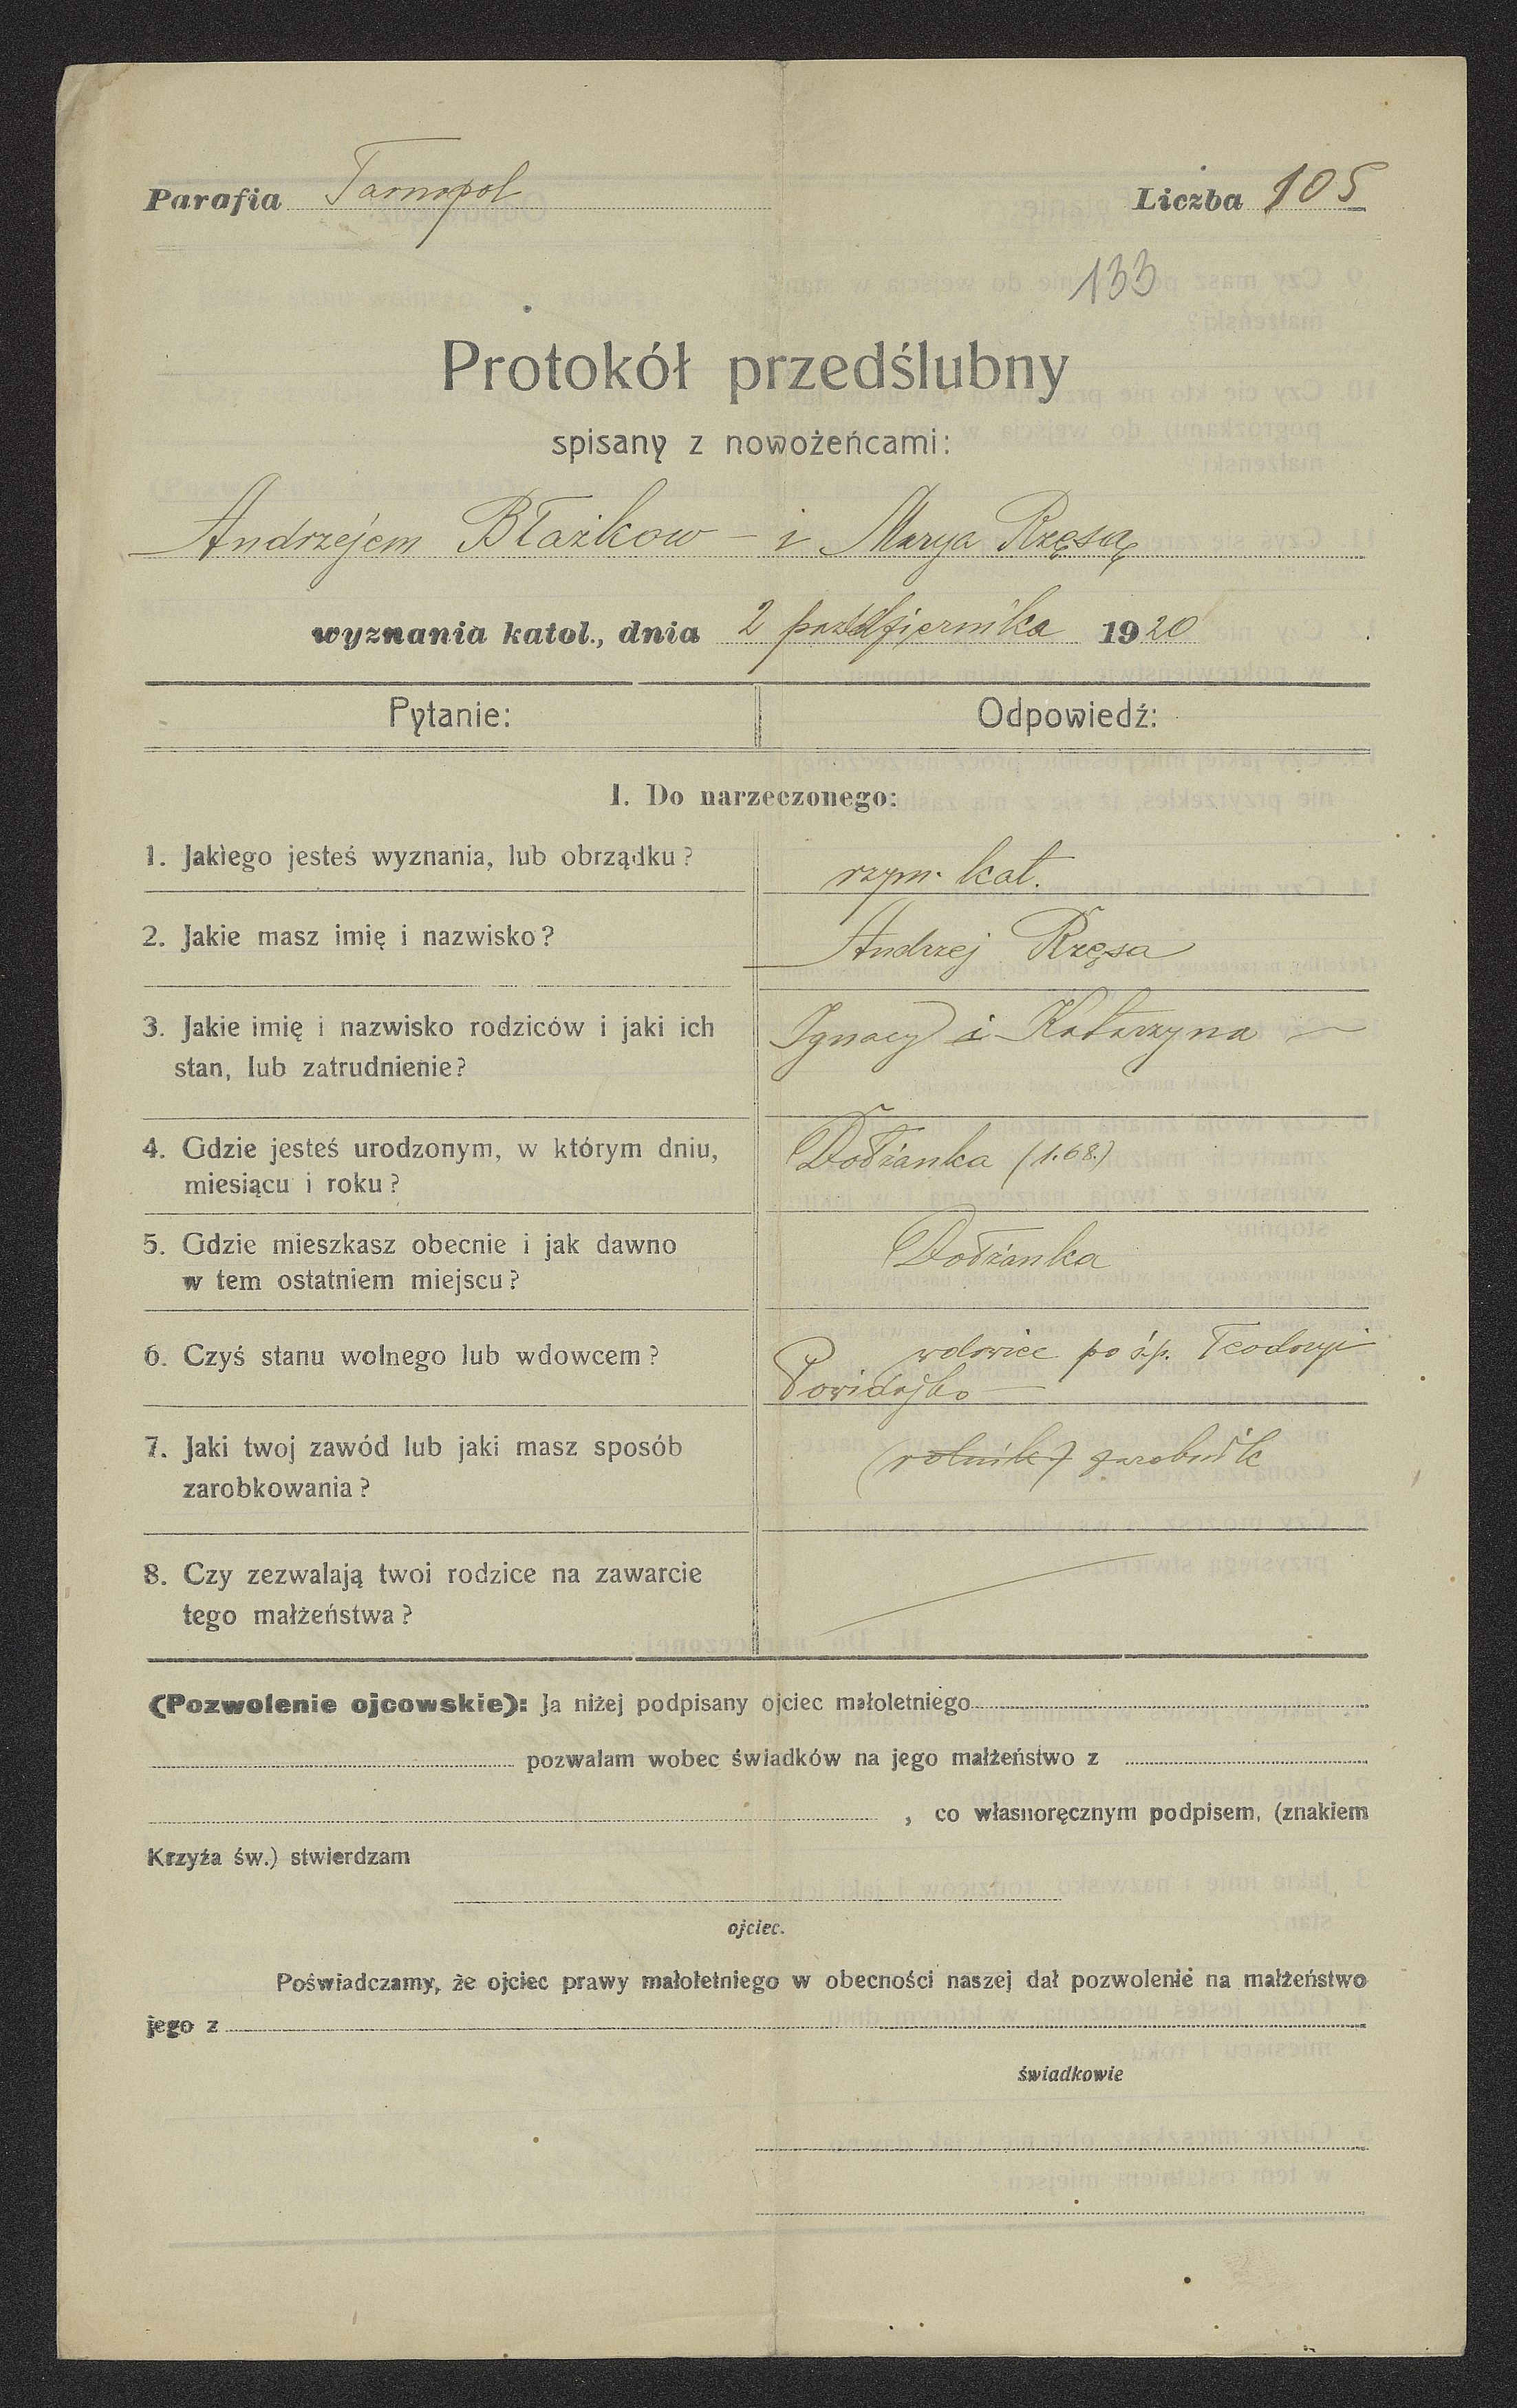 Parafia Tarnopol Liczba 105
133
Protokół przedślubny
spisany z nowożeńcami:
Andrzejem Błażkow - i Marya Rzęsą
wyznania katol., dnia 2 października 1920
Pytanie: Odpowiedź:
I. Do narzeczonego:
1. Jakiego jesteś wyznania, lub obrządku? rzym. kat.
2. Jakie masz imię i nazwisko? Andrzej Rzęsa
3. Jakie imię i nazwisko rodziców i jaki ich Ignacy i Katarzyna
stan, lub zatrudnienie?
4. Gdzie jesteś urodzonym, w którym dniu, Dołżanka (1.68.)
miesiącu i roku?
5. Gdzie mieszkasz obecnie i jak dawno Dołżanka
w tem ostatniem miejscu?
6. Czyś stanu wolnego lub wdowcem? wdowiec po śp. Teodozyi
7. Jaki twoj zawód lub jaki masz sposób (rolnik)
zarobkowania?
8. Czy zezwalają twoi rodzice na zawarcie
tego małżeństwa?
(Pozwolenie ojcowskie): Ja niżej podpisany ojciec małoletniego
pozwalam wobec świadków na jego małżeństwo z
, co własnoręcznym podpisem, (znakiem
Krzyża św.) stwierdzam
ojciec.
Poświadczamy, że ojciec prawy małoletniego w obecności naszej dał pozwolenie na małżeństwo
jego z
świadkowie